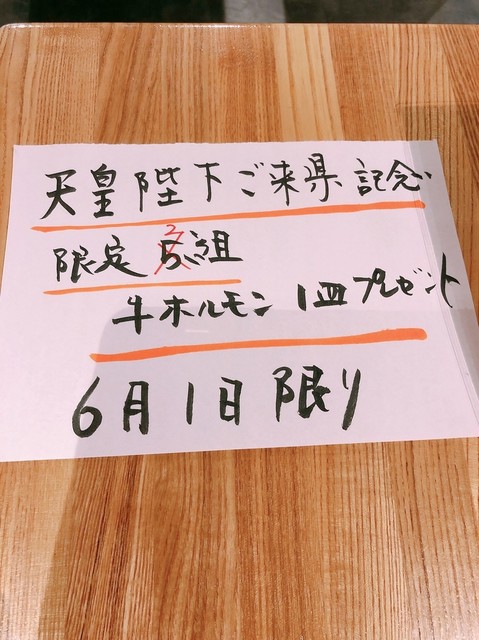 天皇陛下ご来県記念
限定 3組
牛ホルモン 1皿プレゼント
6月1日限り